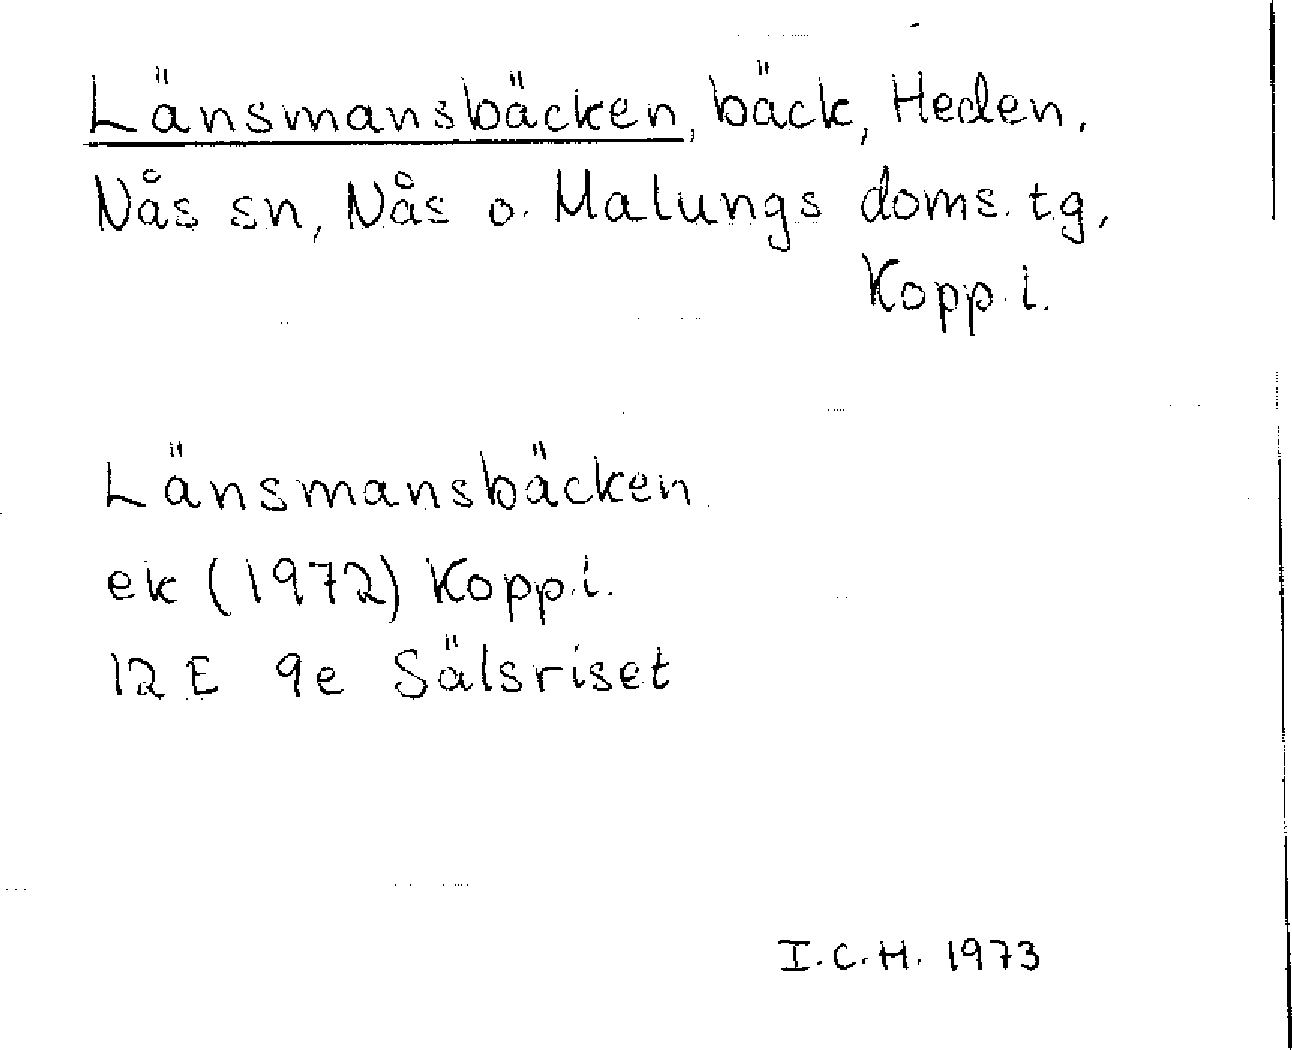 Länsmansbäcken, bäck, Heden.
Nås sn, Nås o. Malungs doms. tg,
Kopp. l.
Länsmansbäcken
ek (1972) Kopp. l.
12 E 9e Sälsriset
I.C.H. 1973